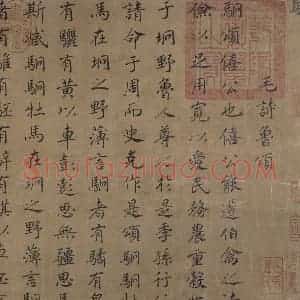 毛詩魯頌
駉頌僖公也僖公能遵伯禽之
儉以足用寬以愛民務農重穀
于坰野魯人尊之於是季孫行
請命于周而史克作是頌駉駉牡
馬在坰之野薄言駉者有驈
有驪有黃以車彭彭思無疆思馬
斯臧駉駉牡馬在坰之野薄言駉
者有騅有駓有騂有騏以車伾
Shufaziliao.com